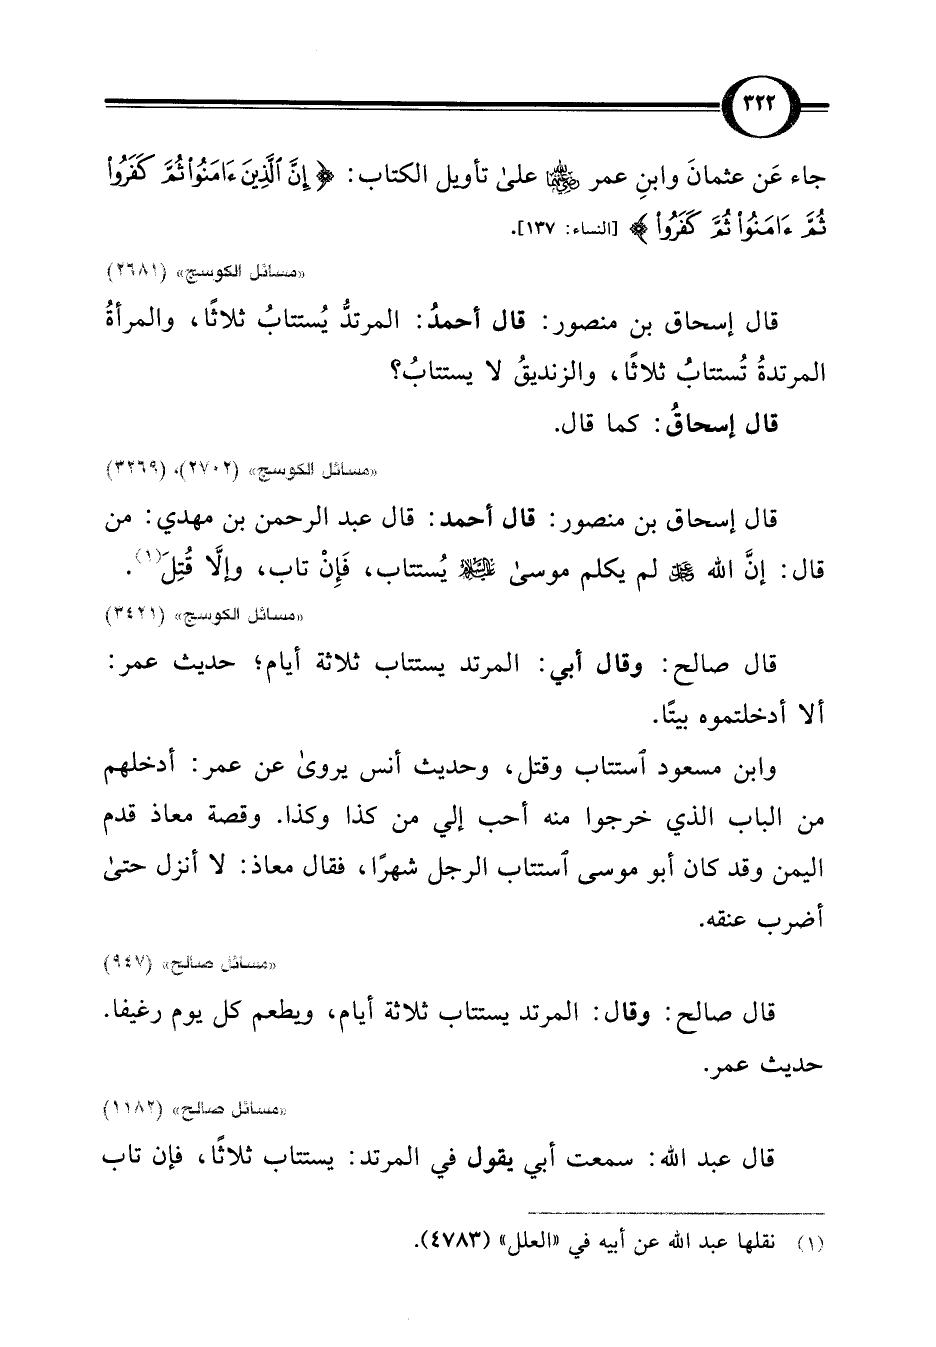 ٣٢٢
جاء عَن عثمانَ وابنِ عمر رضي الله عنهما علىٰ تأويل الكتاب: ﴿ إِنَّ ٱلَّذِينَ ءَامَنُوا۟ ثُمَّ كَفَرُوا۟
ثُمَّ ءَامَنُوا۟ ثُمَّ كَفَرُوا۟ ﴾ [النساء: ١٣٧].
«مسائل الكوسج» (٢٦٨١)
قال إسحاق بن منصور: قال أحمدُ: المرتدُّ يُستتابُ ثلاثًا، والمرأةُ
المرتدةُ تُستتابُ ثلاثًا، والزنديقُ لا يستتابُ؟
قال إسحاقُ: كما قال.
«مسائل الكوسج» (٢٧٠٢)، (٣٢٦٩)
قال إسحاق بن منصور: قال أحمد: قال عبد الرحمن بن مهدي: من
قال: إنَّ الله ﷿ لم يكلم موسىٰ عليه السلام يُستتاب، فَإِنْ تاب، وإلَّا قُتِلَ(١).
«مسائل الكوسج» (٣٤٢١)
قال صالح: وقال أبي: المرتد يستتاب ثلاثة أيام؛ حديث عمر:
ألا أدخلتموه بيتًا.
وابن مسعود ٱستتاب وقتل، وحديث أنس يروىٰ عن عمر: أدخلهم
من الباب الذي خرجوا منه أحب إلي من كذا وكذا. وقصة معاذ قدم
اليمن وقد كان أبو موسى ٱستتاب الرجل شهرًا، فقال معاذ: لا أنزل حتىٰ
أضرب عنقه.
«مسائل صالح» (٩٤٧)
قال صالح: وقال: المرتد يستتاب ثلاثة أيام، ويطعم كل يوم رغيفا.
حديث عمر.
«مسائل صالح» (١١٨٢)
قال عبد الله: سمعت أبي يقول في المرتد: يستتاب ثلاثًا، فإن تاب
(١) نقلها عبد الله عن أبيه في «العلل» (٤٧٨٣).